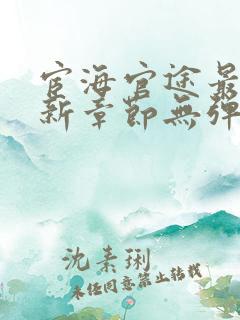 宦海官途最
新章節無彈
沈素琍
未經同意禁止轉載